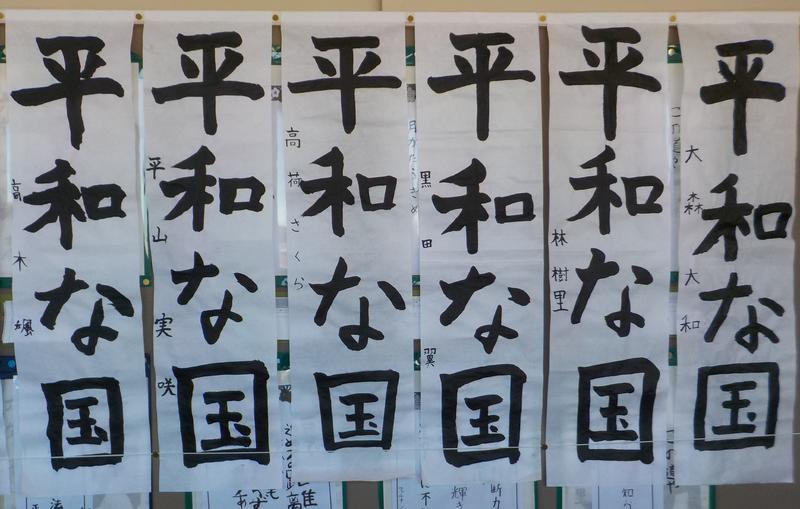 平和な国
大森大和
平和な国
林樹里
平和な国
黒田翼
平和な国
高荷さくら
平和な国
平山実咲
平和な国
高木颯